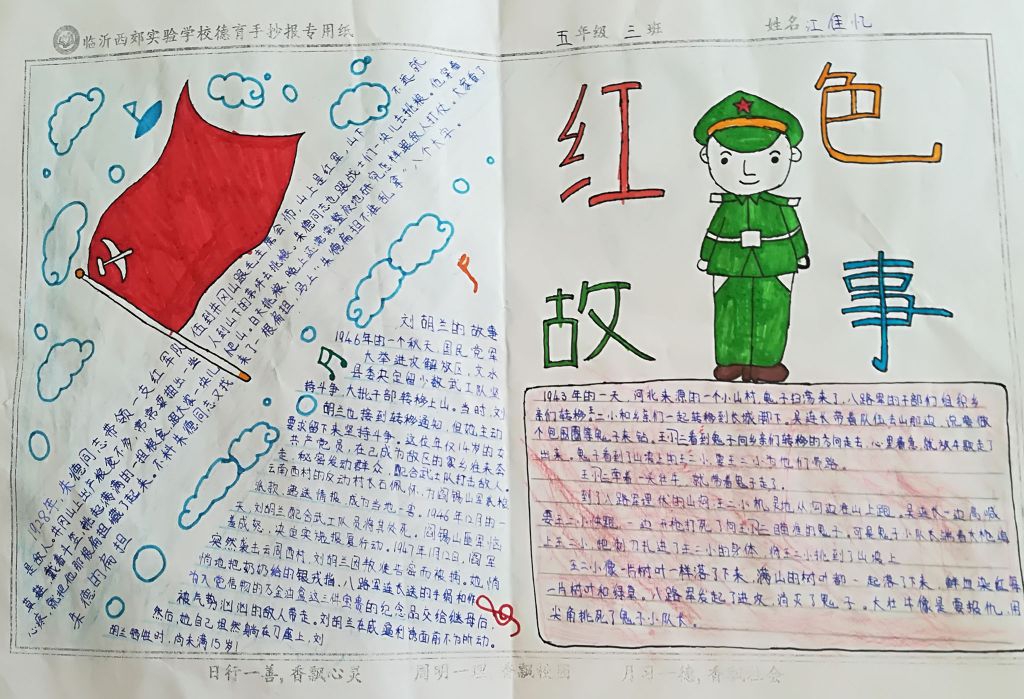 临沂西郊实验学校德育手抄报专用纸
五年级 三班
姓名 江佳忆
红色
故事
朱德的扁担
1928年,朱德同志带领一支红军队伍到井冈山跟毛主席会师,山上是红军,山下不远就
是敌人。井冈山上出产粮食不多,常常要抽出一些人到山下的茅坪去挑粮。朱德同志也跟战士们一块儿去挑粮。他穿着
草鞋,戴着斗笠,挑起满满的一担粮食,跟大家一块儿爬山。白天挑粮,晚上还常常整夜地研究怎样跟敌人打仗。大家看了
心疼,就把他那根扁担藏了起来。不料朱德同志又找来了一根扁担,写上"朱德扁担不准乱拿"八个大字。
刘胡兰的故事
1946年的一个秋天,国民党军
大举进攻解放区,文水
县委决定留少数武工队坚
持斗争,大批干部转移上山。当时,刘
胡兰也接到转移通知,但她主动
要求留下来坚持斗争。这位年仅14岁的女
共产党员,在已成为敌区的家乡往来奔
走,秘密发动群众,配合武工队打击敌人。
云南西村的反动村长石佩怀,为阎锡山军派粮
派款,递送情报,成为当地一害。1946年12月的一
天,刘胡兰配合武工队员将其处死。阎锡山匪军恼
羞成怒,决定实施报复行动。1947年1月12日,阎军
突然袭击云周西村,刘胡兰因叛徒告密而被捕。她悄
悄地把奶奶给的银戒指、八路军连长送的手绢和作
为入党信物的万金油盒这三件宝贵的纪念品交给继母后
被气势汹汹的敌人带走。刘胡兰在威逼利诱面前不为所动。
然后,她自己坦然躺在刀座上,刘
胡兰牺牲时,尚未满15岁!
1943年的一天,河北涞源的一个小山村,鬼子扫荡来了,八路军的干部们组织乡
亲们转移。王二小和乡亲们一起转移到长城脚下,吴连长带着队伍去山那边,说要做
个包围圈等鬼子来钻。王二小看到鬼子向乡亲们转移的方向走去,心里着急,就放牛
出来。鬼子看到了山坡上的王二小,要王二小为他们带路。
王二小牵着一头壮牛,就带着鬼子走了。
到了八路军埋伏的山沟,王二小机灵地从河边往山上跑,吴连长一边高喊
要王二小快跑,一边开枪打死了向王二小瞄准的鬼子。可是鬼子小队长
上王二小,把刺刀扎进了王二小的身体,将王二小挑到了山坡上。
王二小像一片树叶一样落了下来,满山的树叶都一起落了下来,鲜血染红
一片树叶和绿草。八路军发起了进攻,消灭了鬼子。大壮牛像是要报仇,用
尖角挑死了鬼子小队长。
日行一善,香飘心灵
周明一理,香飘校园
月习一德,香飘社会